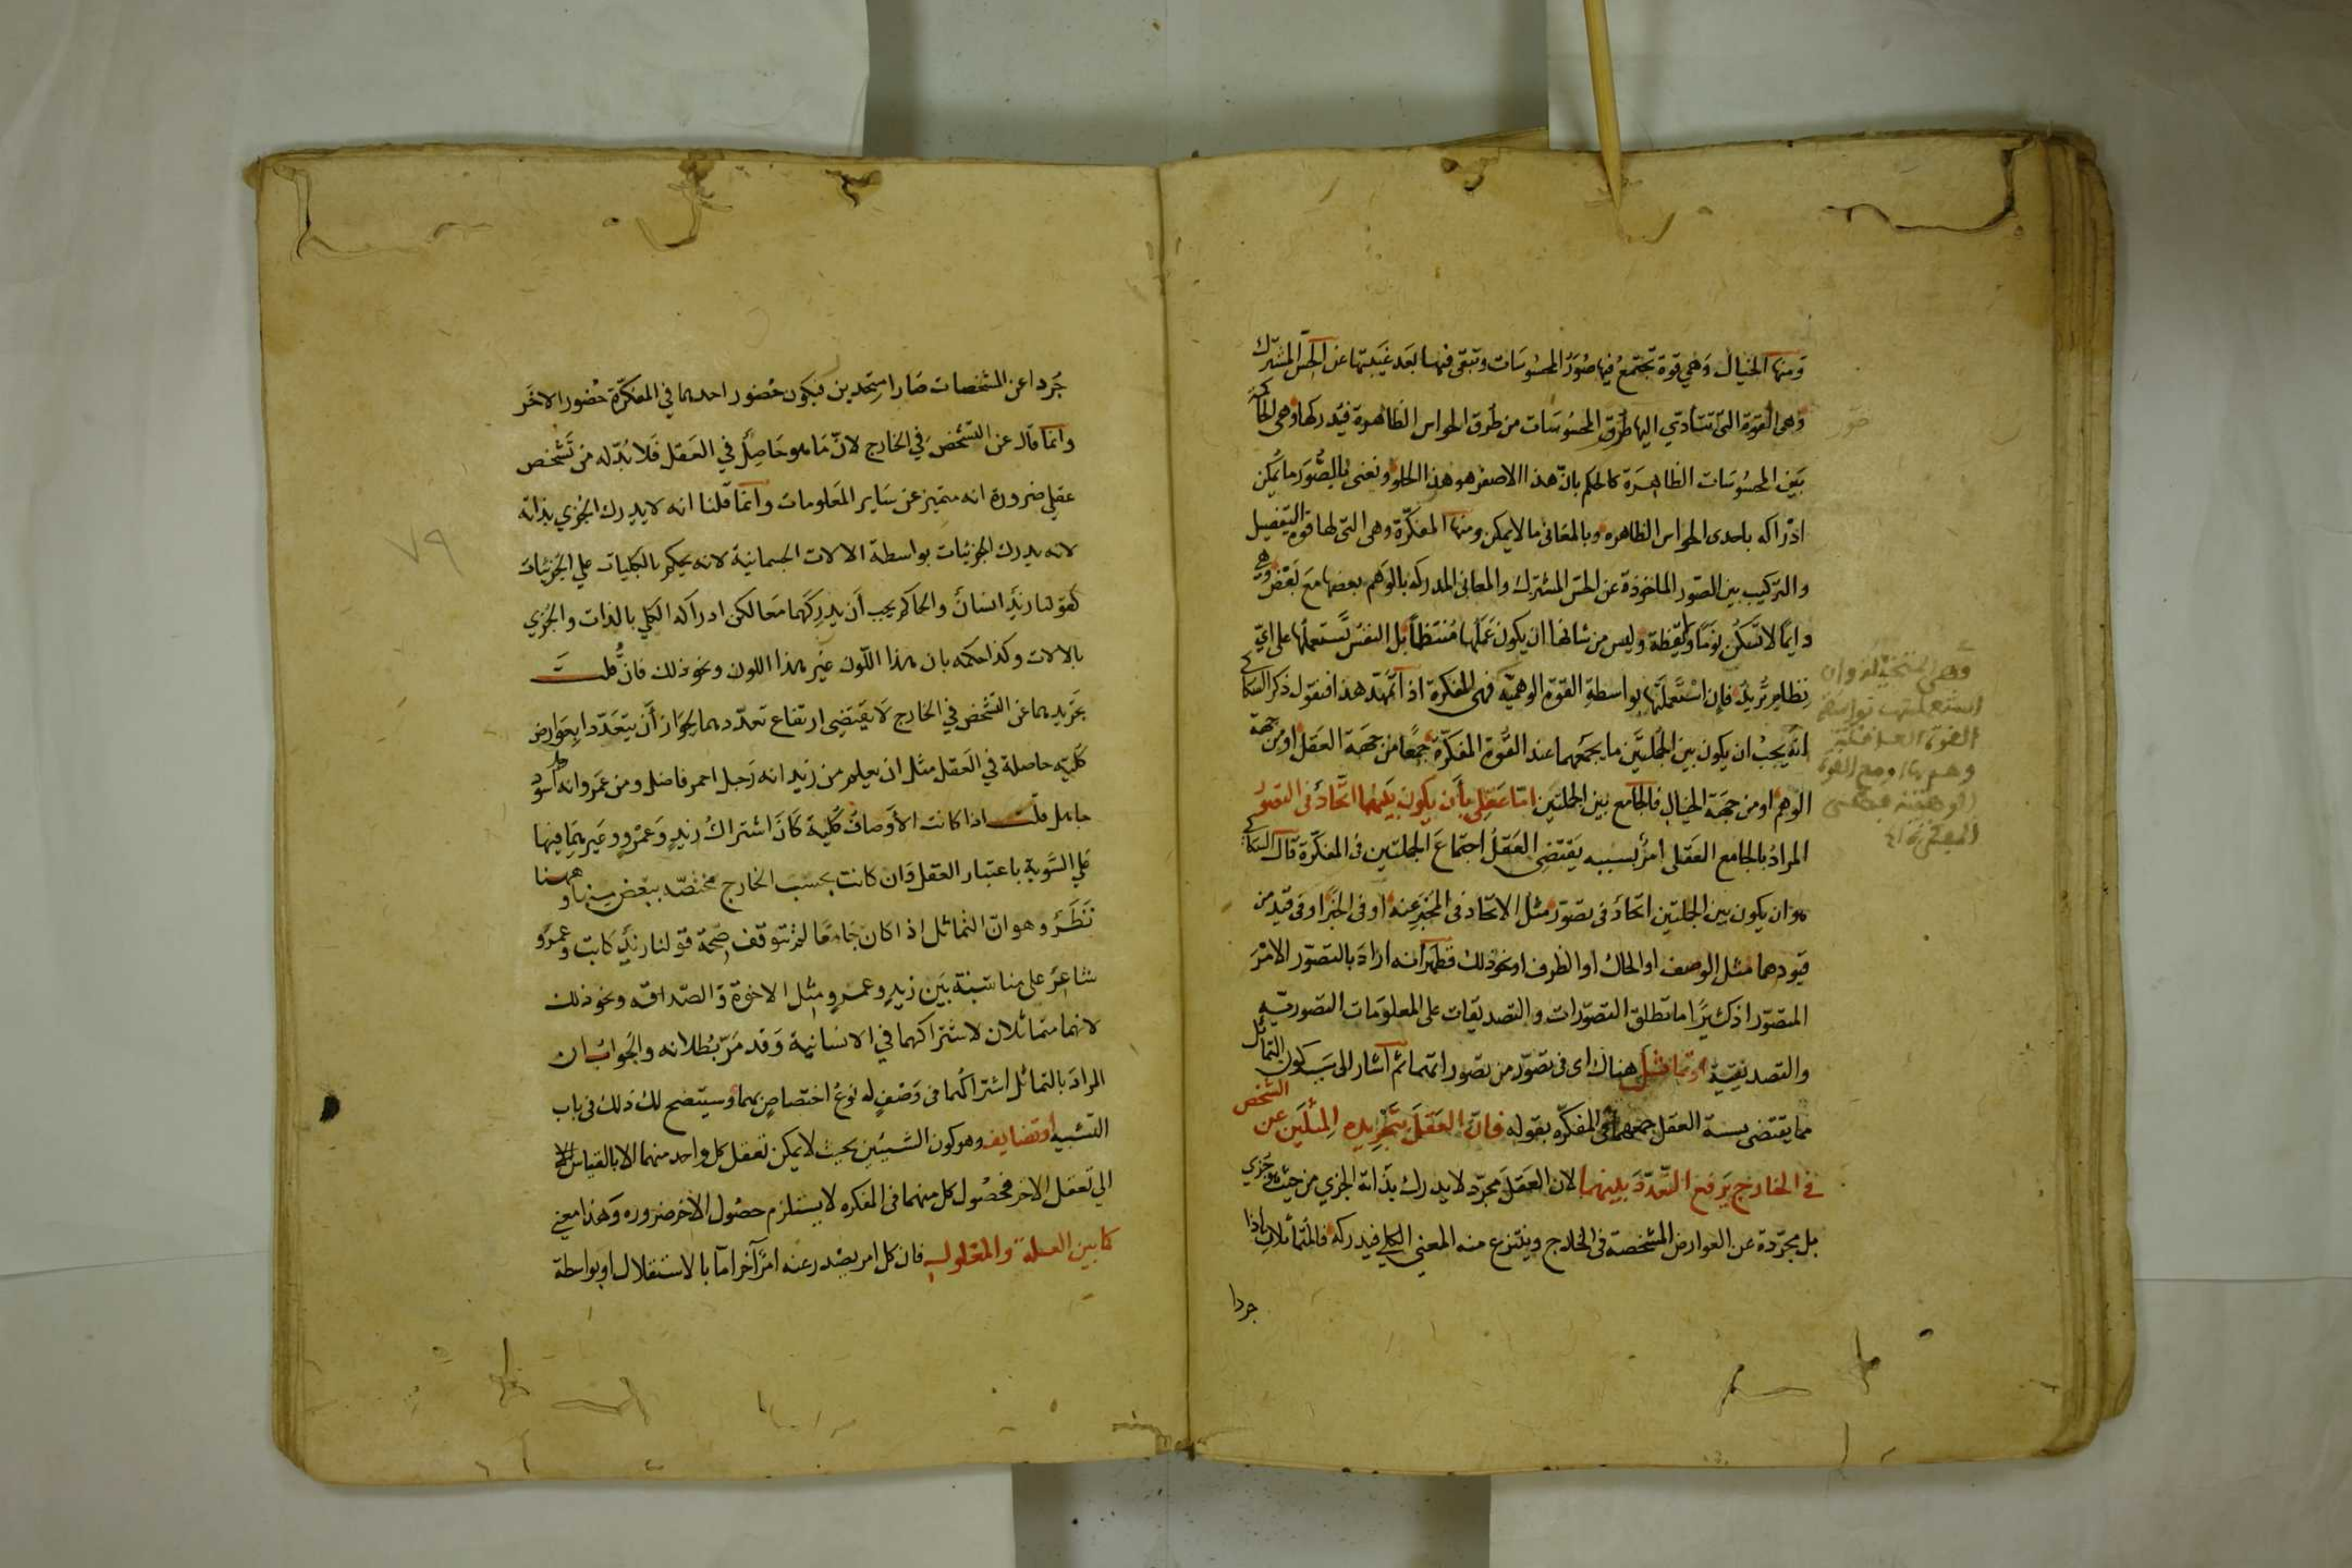 ومنها الخيال وهي قوة تجتمع فيها صور المحسوسات وتبقى فيها بعد غيبتها عن الحس المشترك
وهي القوة التي تتأدي اليها طرق المحسوسات من طرق الحواس الظاهرة فيدركها وهي الحاكمة
بين المحسوسات الظاهرة كالحكم بان هذا الاصفر هو هذا الحلو ونعني بالصور ما يمكن
ادراكه باحدى الحواس الظاهره وبالمعاني مالا يمكن ومنها المفكرة وهي التي لها قوة التفصيل
والتركيب بين الصور الماخوذة عن الحس المشترك والمعاني المدركه بالوهم بعضها مع بعض وهي
دايما لا تسكن نوما ولا يقظة وليس من شانها ان يكون عملها منتظما بل النفس تستعملها على اي
نظام تريد فان استعملتها بواسطة القوة الوهمية فهي المفكرة اذا تمهد هذا فنقول ذكر السكاكي
انه يجب ان يكون بين الجملتين ما يجمعهما عند القوة المفكرة جمعا من جهة العقل او من جهة
الوهم او من جهة الخيال فالجامع بين الجملتين اما عقلي بان يكون بينهما اتحاد في التصور
المراد بالجامع العقلي امر بسببه يقتضي العقل اجتماع الجملتين في المفكرة قال السكاكي
هو ان يكون بين الجملتين اتحاد في تصور مثل الاتحاد في المخبر عنه او في الخبر او في قيد من
قيودهما مثل الوصف او الحال او الظرف او نحو ذلك فظهر انه اراد بالتصور الامر
المتصور اذ كثيرا ما تطلق التصورات والتصديقات على المعلومات التصورية
والتصديقية او تماثل هناك اي في تصور من تصوراتهما ثم اشار الى سبب كون التماثل
مما يقتضي بسببه العقل جمعهما في المفكره بقوله فان العقل بتجريده المثلين عن الشخص
في الخارج يرفع التعدد بينهما لان العقل مجرد لا يدرك بذاته الجزي من حيث هو جزي
بل مجردة عن العوارض المشخصة في الخارج وينتزع منه المعني الكلي فيدركه فالمتماثلان اذا
جردا
وهي المتخيلة وان
استعملتها بواسطة
القوة العاقلة
جردا عن المشخصات صارا متحدين فيكون حضور احدهما في المفكرة حضور الاخر
وانما قال عن التشخص في الخارج لان ما هو حاصل في العقل فلا بد له من تشخص
عقلي ضرورة انه متميز عن ساير المعلومات وانما قلنا انه لا يدرك الجزي بذاته
لانه يدرك الجزئيات بواسطة الالات الجسمانية لانه يحكم بالكليات علي الجزئيات
كقولنا زيد انسان والحاكم يجب أن يدركهما معا لكن ادراكه الكلي بالذات والجزي
بالالات وكذا حكمه بان هذا اللون غير هذا اللون ونحو ذلك فان قلت
تجريدهما عن التشخص في الخارج لا يقتضي ارتفاع تعددهما لجواز أن يتعددا بعوارض
كلية حاصلة في العقل مثل ان يعلم من زيد انه رجل احمر فاضل ومن عمرو انه اسود
جاهل قلت اذا كانت الأوصاف كلية كان اشتراك زيد وعمرو وغيرهما فيها
علي السوية باعتبار العقل وان كانت بحسب الخارج مختصه ببعض منها وههنا
نظر وهو ان التماثل اذا كان جامعا لم تتوقف صحة قولنا زيد كاتب وعمرو
شاعر على مناسبة بين زيد وعمرو مثل الاخوة والصداقه ونحو ذلك
لانهما متماثلان لاشتراكهما في الانسانية وقد مر بطلانه والجواب ان
المراد بالتماثل اشتراكهما في وصف له نوع اختصاص بهما وسيتضح لك ذلك في باب
التشبيه او تضايف وهو كون الشيئين بحيث لا يمكن تعقل كل واحد منهما الا بالقياس
الي تعقل الاخر فحصول كل منهما في المفكره لا يستلزم حصول الاخر ضروره وهذا معني
كما بين العلة والمعلول فان كل امر يصدر عنه امر آخر اما بالاستقلال او بواسطة
٧٩